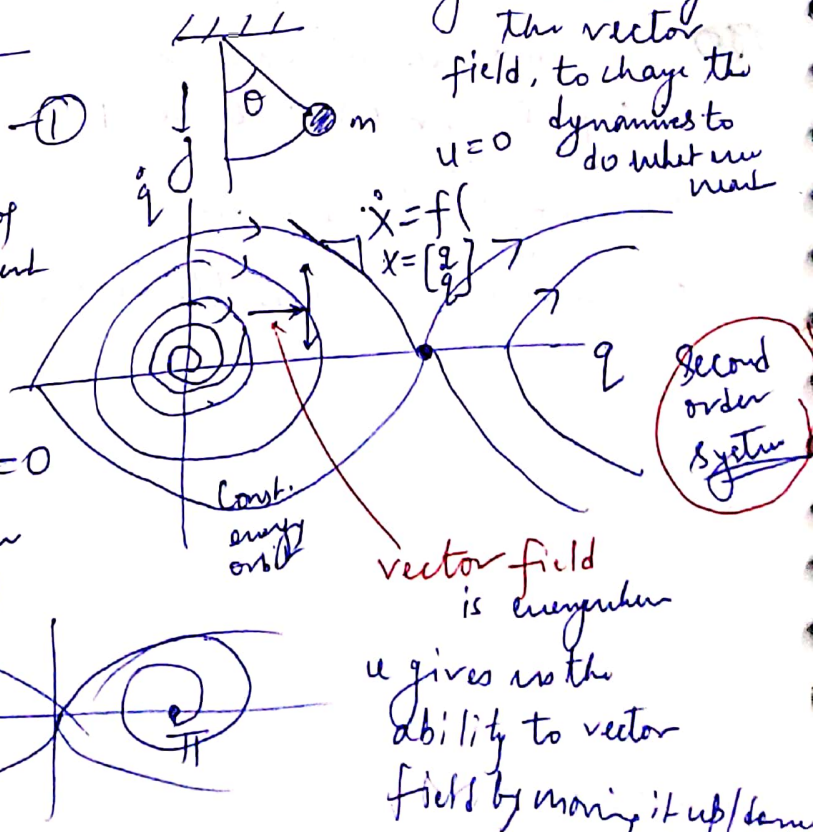 the vector
field, to change the
dynamics to
do what we
want
u=0
①
θ
m
g
q̇
ẋ = f(
x = [q
q̇]
q
Second
order
system
=0
Const.
energy
orbit
vector field
is everywhere
π
u gives us the
ability to vector
field by moving it up/down